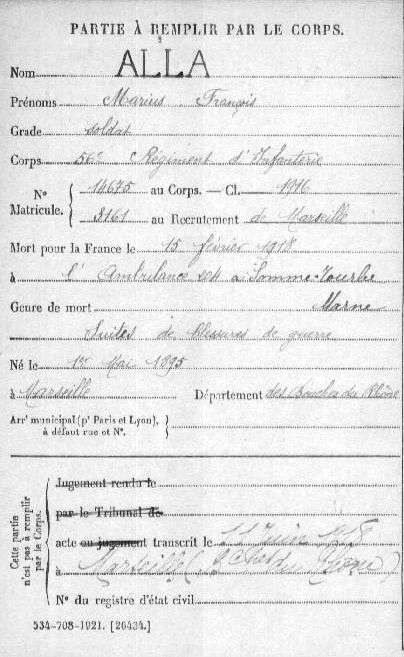 PARTIE À REMPLIR PAR LE CORPS.
Nom ALLA
Prénoms Marius François
Grade soldat
Corps 56e Régiment d'Infanterie
N° Matricule. { 14675 au Corps. — Cl. 1916
8161 au Recrutement de Marseille
Mort pour la France le 15 février 1918
à l'Ambulance à Somme-Tourbe
Genre de mort Marne
Suites de blessures de guerre
Né le 1er Mai 1895
à Marseille Département des Bouches du Rhône
Arrt municipal (pr Paris et Lyon), à défaut rue et N°. }
Cette partie n'est pas à remplir par le Corps.
Jugement rendu le
par le Tribunal de
acte ou jugement transcrit le Juin
à Marseille
N° du registre d'état civil
534-708-1921. [26434.]